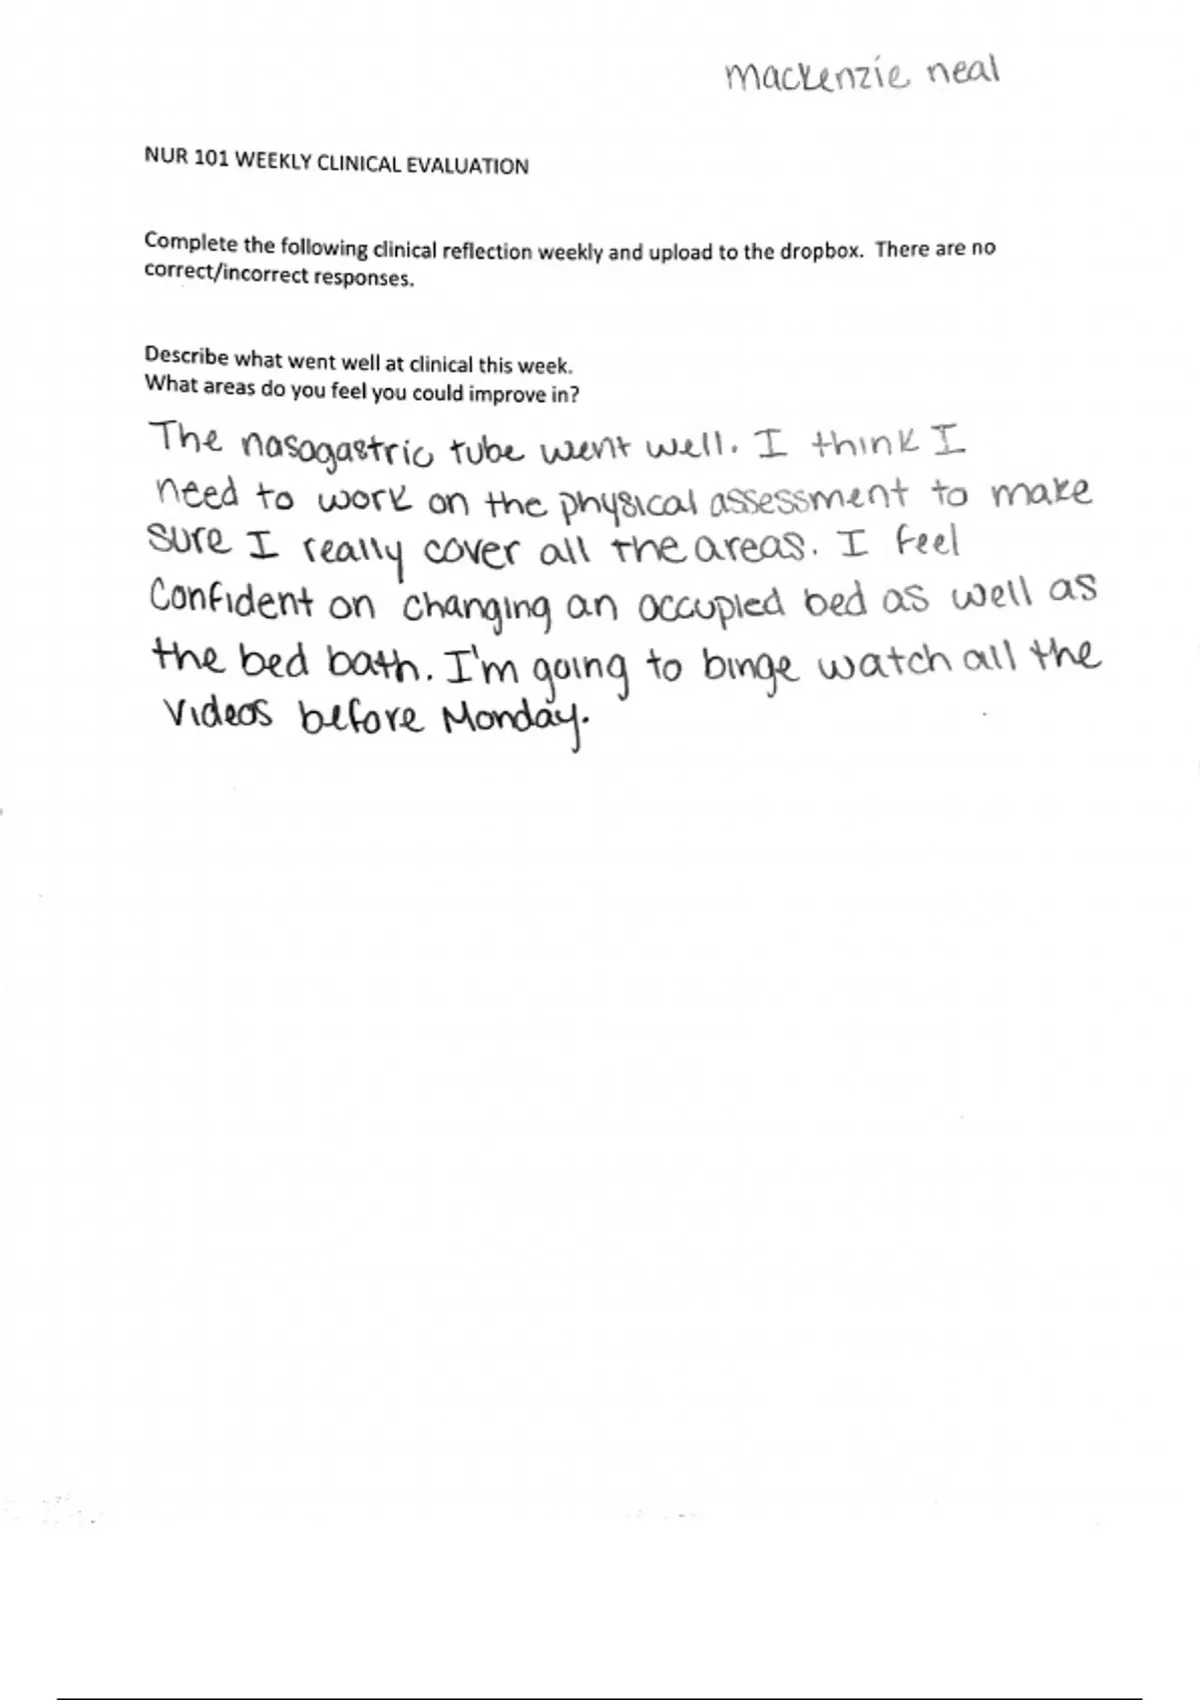 mackenzie neal
NUR 101 WEEKLY CLINICAL EVALUATION
Complete the following clinical reflection weekly and upload to the dropbox. There are no
correct/incorrect responses.
Describe what went well at clinical this week.
What areas do you feel you could improve in?
The nasogastric tube went well. I think I
need to work on the physical assessment to make
sure I really cover all the areas. I feel
Confident on changing an occupied bed as well as
the bed bath. I'm going to binge watch all the
videos before Monday.